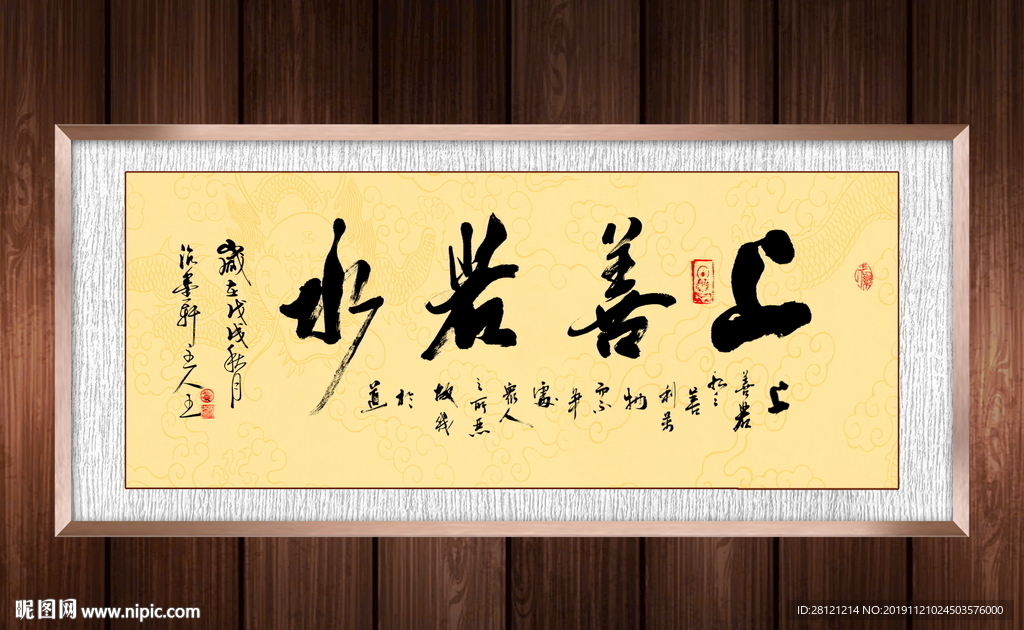 上善若水
上善若水〻善利萬物而不爭處眾人之所惡故幾於道
歲在戊戌秋月
墨軒主人王
昵图网 www.nipic.com
ID:28121214 NO:20191121024503576000